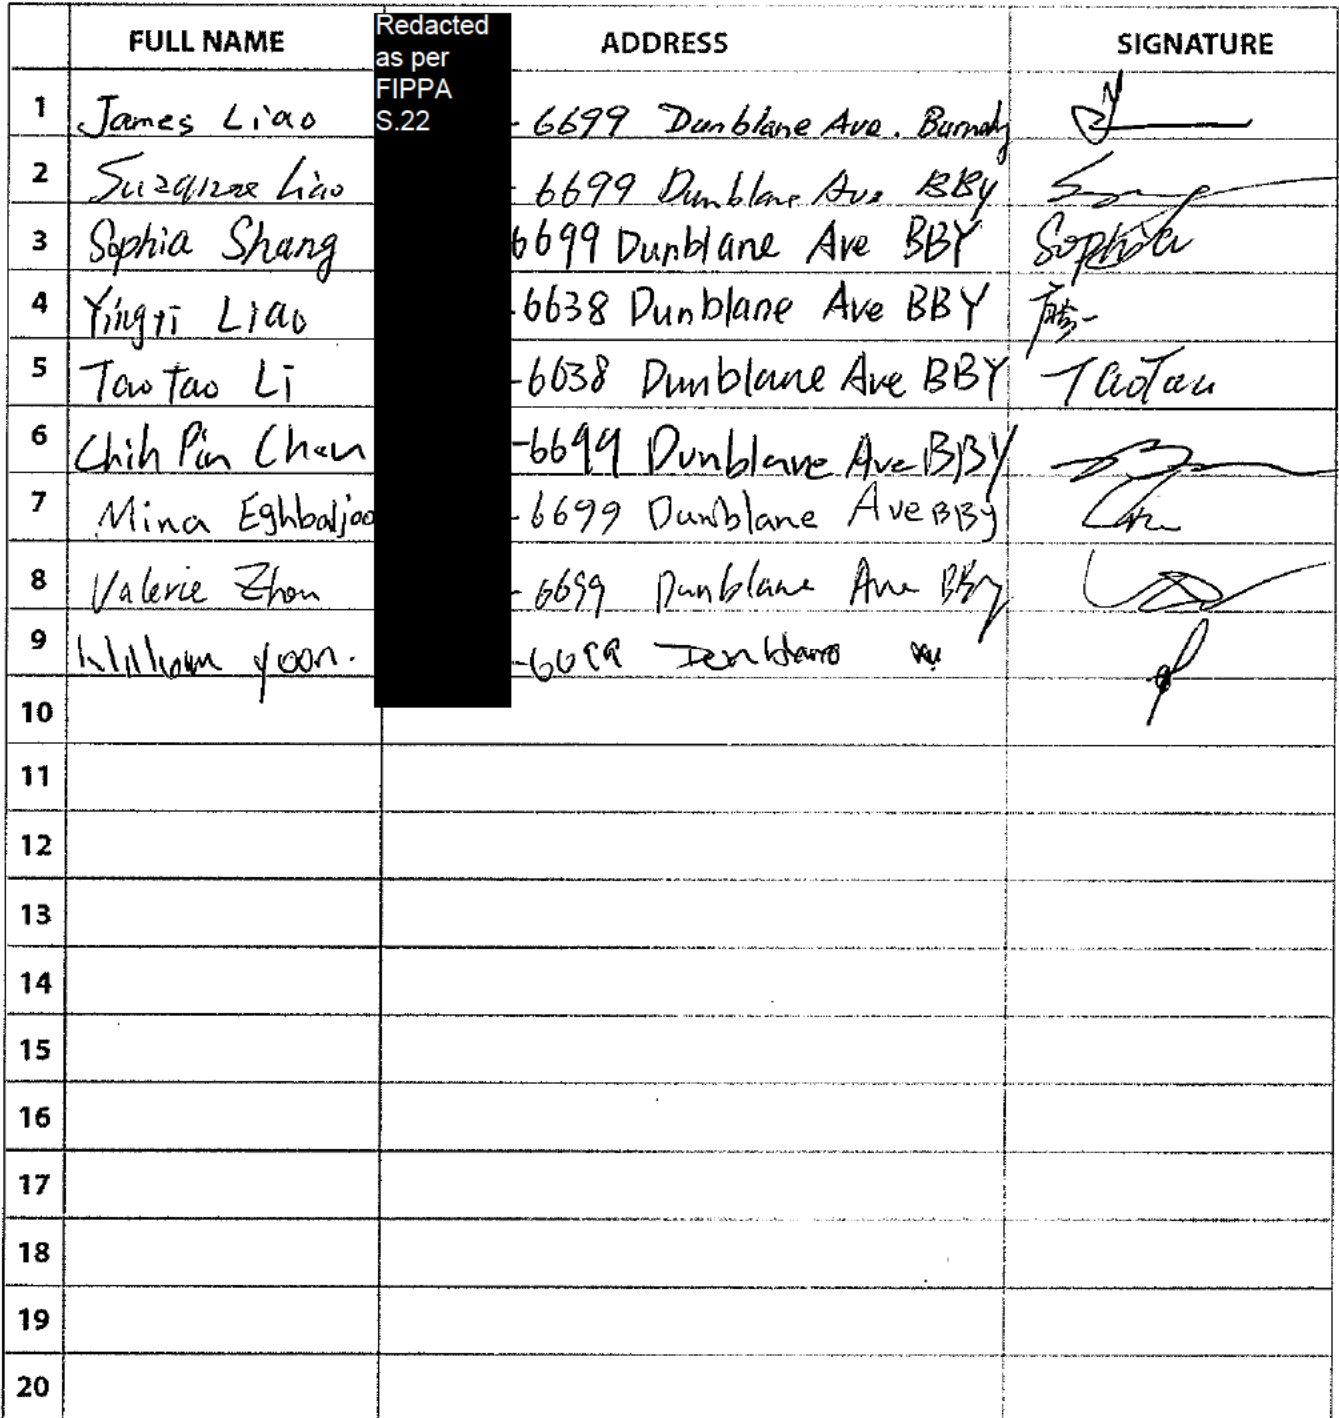 FULL NAME Redacted as per FIPPA S.22 ADDRESS SIGNATURE
1 James Liao - 6699 Dunblane Ave. Burnaby
2 Suzanne Liao - 6699 Dunblane Ave BBY
3 Sophia Shang 6699 Dunblane Ave BBY Sophia
4 Yingyi Liao -6638 Dunblane Ave BBY
5 Tao Tao Li -6638 Dunblane Ave BBY TaoTao
6 Chih Pin Chen -6699 Dunblane Ave BBY
7 Mina Eghbaljoo -6699 Dunblane Ave BBy
8 Valerie Zhou -6699 Dunblane Ave BBy
9 William yoon. -6699 Dunblane
10
11
12
13
14
15
16
17
18
19
20